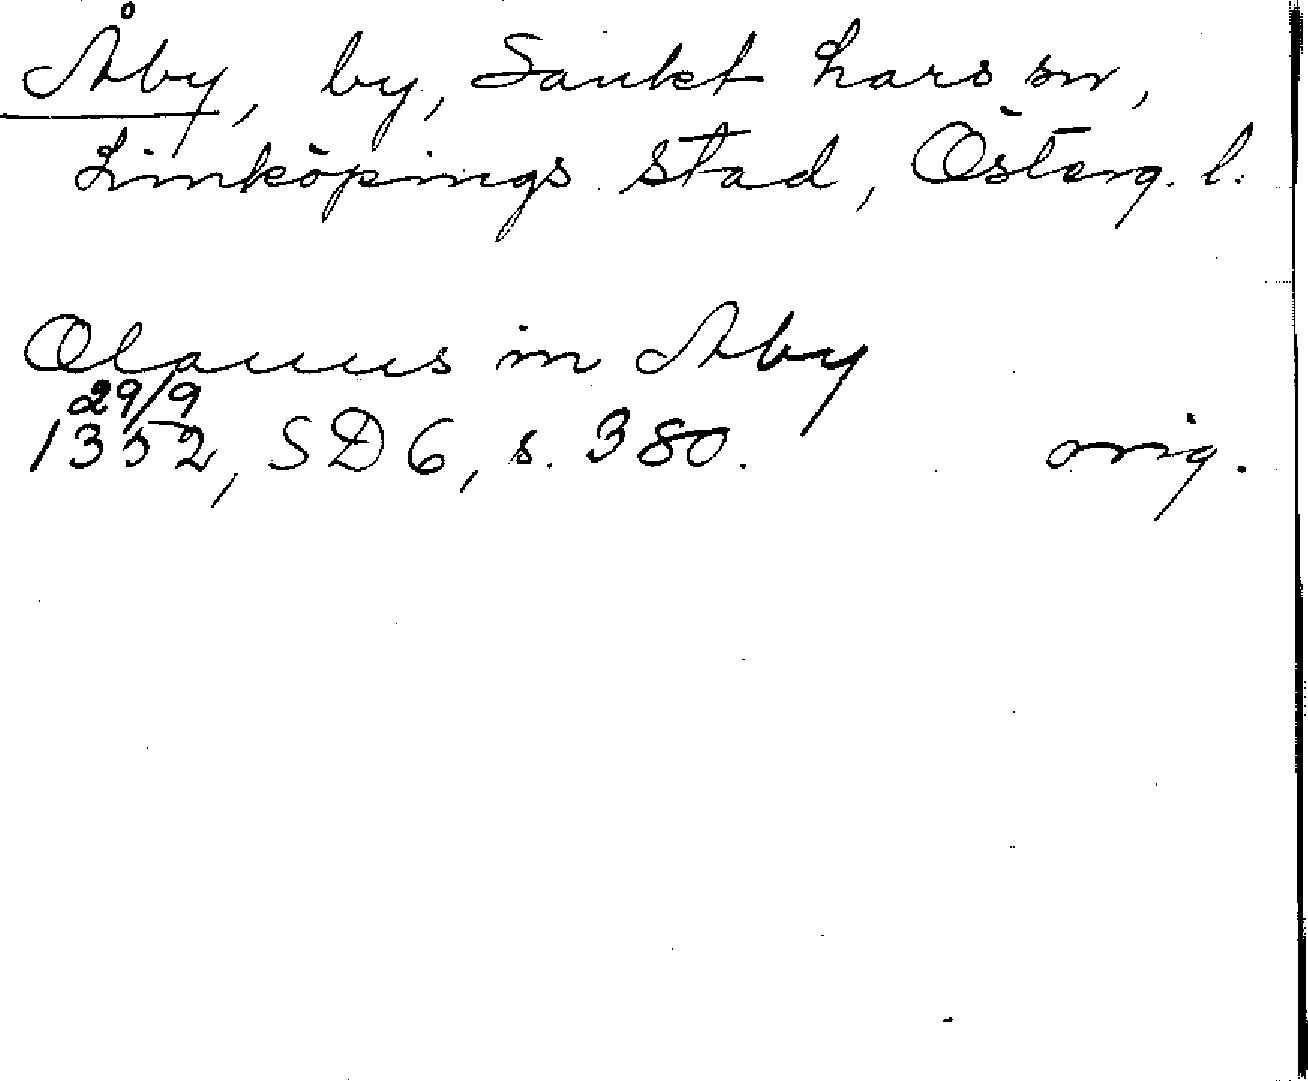 Åby, by, Sankt Lars sn,
Linköpings stad, Österg. l.
Olauus in Aby
29/9
1352, SD 6, s. 380. orig.